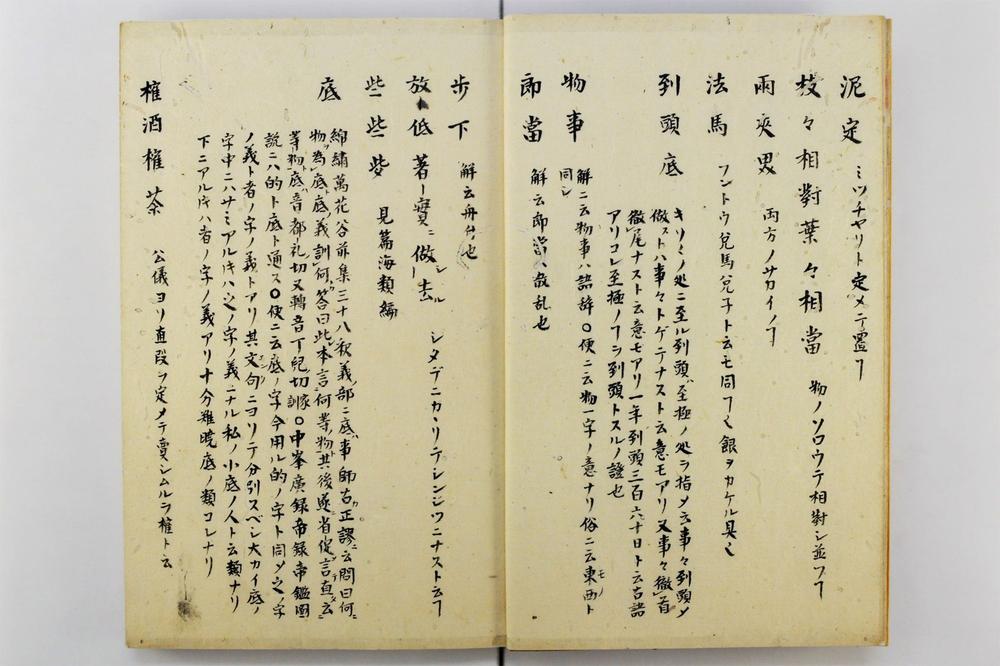 泥定 ミツチヤリト定メテ置ヿ
枝々相對葉々相當 物ノソロウテ相對シ並フヿ
雨夾 両方ノサカイノヿ
法馬 フントウ兌馬兌子ト云モ同フ 銀ヲカケル具
到頭底 キリミノ処ニ至ル到頭ハ至極ノ処ヲ指メ云事々到頭メ
做ストハ事々トゲテナスト云意モアリ又事々徹首
徹尾ナスト云意モアリ一年到頭三百六十日ト云古語
アリコレ至極ノフヲ到頭トスルノ證也
物事 解ニ云物事ハ語辞〇便ニ云物一字ノ意ナリ俗ニ云東西ト
同シ
郎當 解云郎當ハ散乱也
歩下 解云舟付也
放低著實做去 シタデニカヽリテシンジツニナスト云ヿ
些些 見篇海類編
底 綿繡萬花谷前集三十八釈義部ニ底事師古正謬云問曰何
物為底底義訓何答曰此本言何等物其後遂省但言直云
等物底音都礼切又轉音丁兒切 〇中峯廣録帝録帝鑑圖
説ニハ的ト底ト通ス〇便ニ云底ノ字今用ル的ノ字ト同メ之ノ字
ノ義ト者ノ字ノ義トアリ其文句ニヨリテ分別スベシ大カイ底ノ
字中ニハサミアルキハ之ノ字ノ義ニナル私ノ小底ノ人ト云類ナリ
下ニアルキハ者ノ字ノ義アリ十分難暁底ノ類コレナリ
榷酒榷茶 公儀ヨリ直段ヲ定メテ賣シムルヲ榷ト云